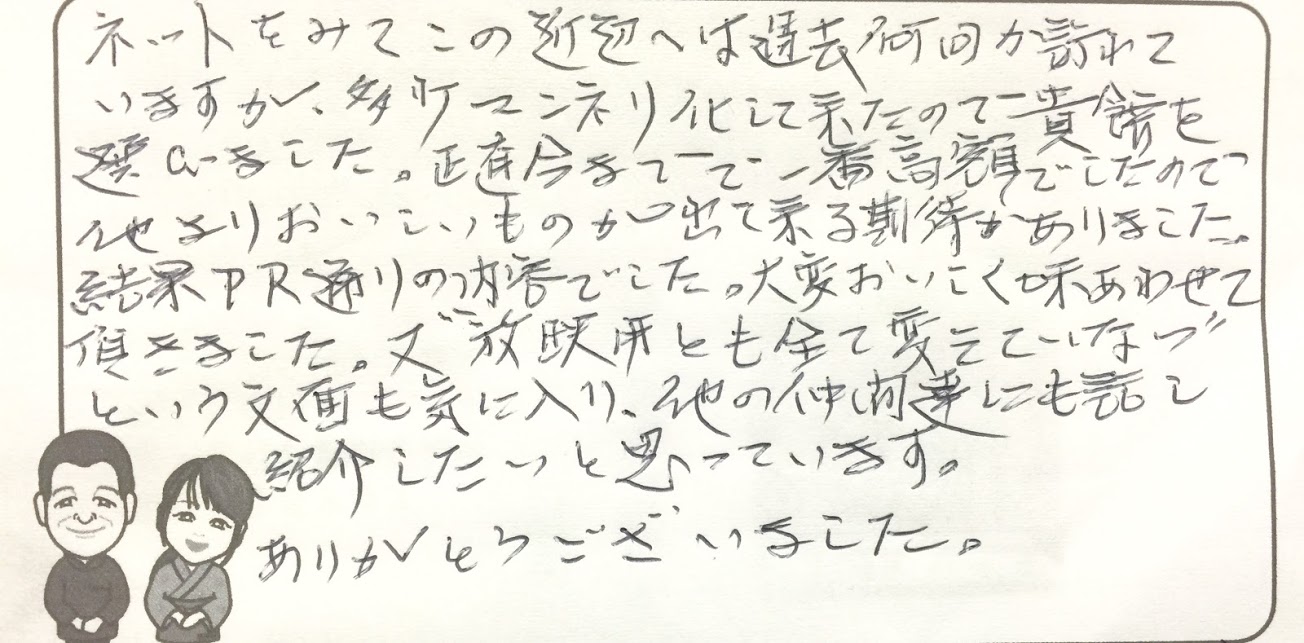 ネットをみてこの近辺へは過去何回か訪れて
いますが、多少マンネリ化して来たので貴館を
選いました。正直今まてで一番高額でしたので
他よりおいしいものが出て来る期待がありました。
結果PR通りの内容でした。大変おいしく味あわせて
頂きました。又"放映用とも全て変えていない"
という文面も気に入り、他の仲間達にも話し
紹介したいと思っています。
ありがとうございました。